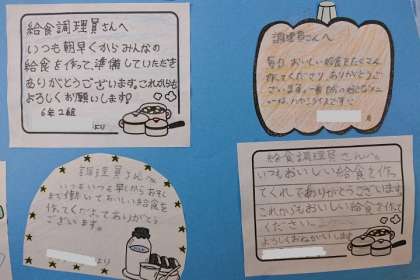 給食調理員さんへ
いつも朝早くからみんなの
給食を作って、準備していただき
ありがとうございます。これからも
よろしくお願いします!
6年2組
より
調理員さんへ
毎日おいしい給食をたくさん
作ってくださり、ありがとうござ
います。
調理員さんへ
いつもいつも早くからおそく
まで働いておいしい給食を
作ってくださってありがとう
ございます。
より
給食調理員さんへ
いつもおいしい給食を作っ
てくれてありがとうございます
これからもおいしい給食を作って
ください。
よろしくおねがいします
より